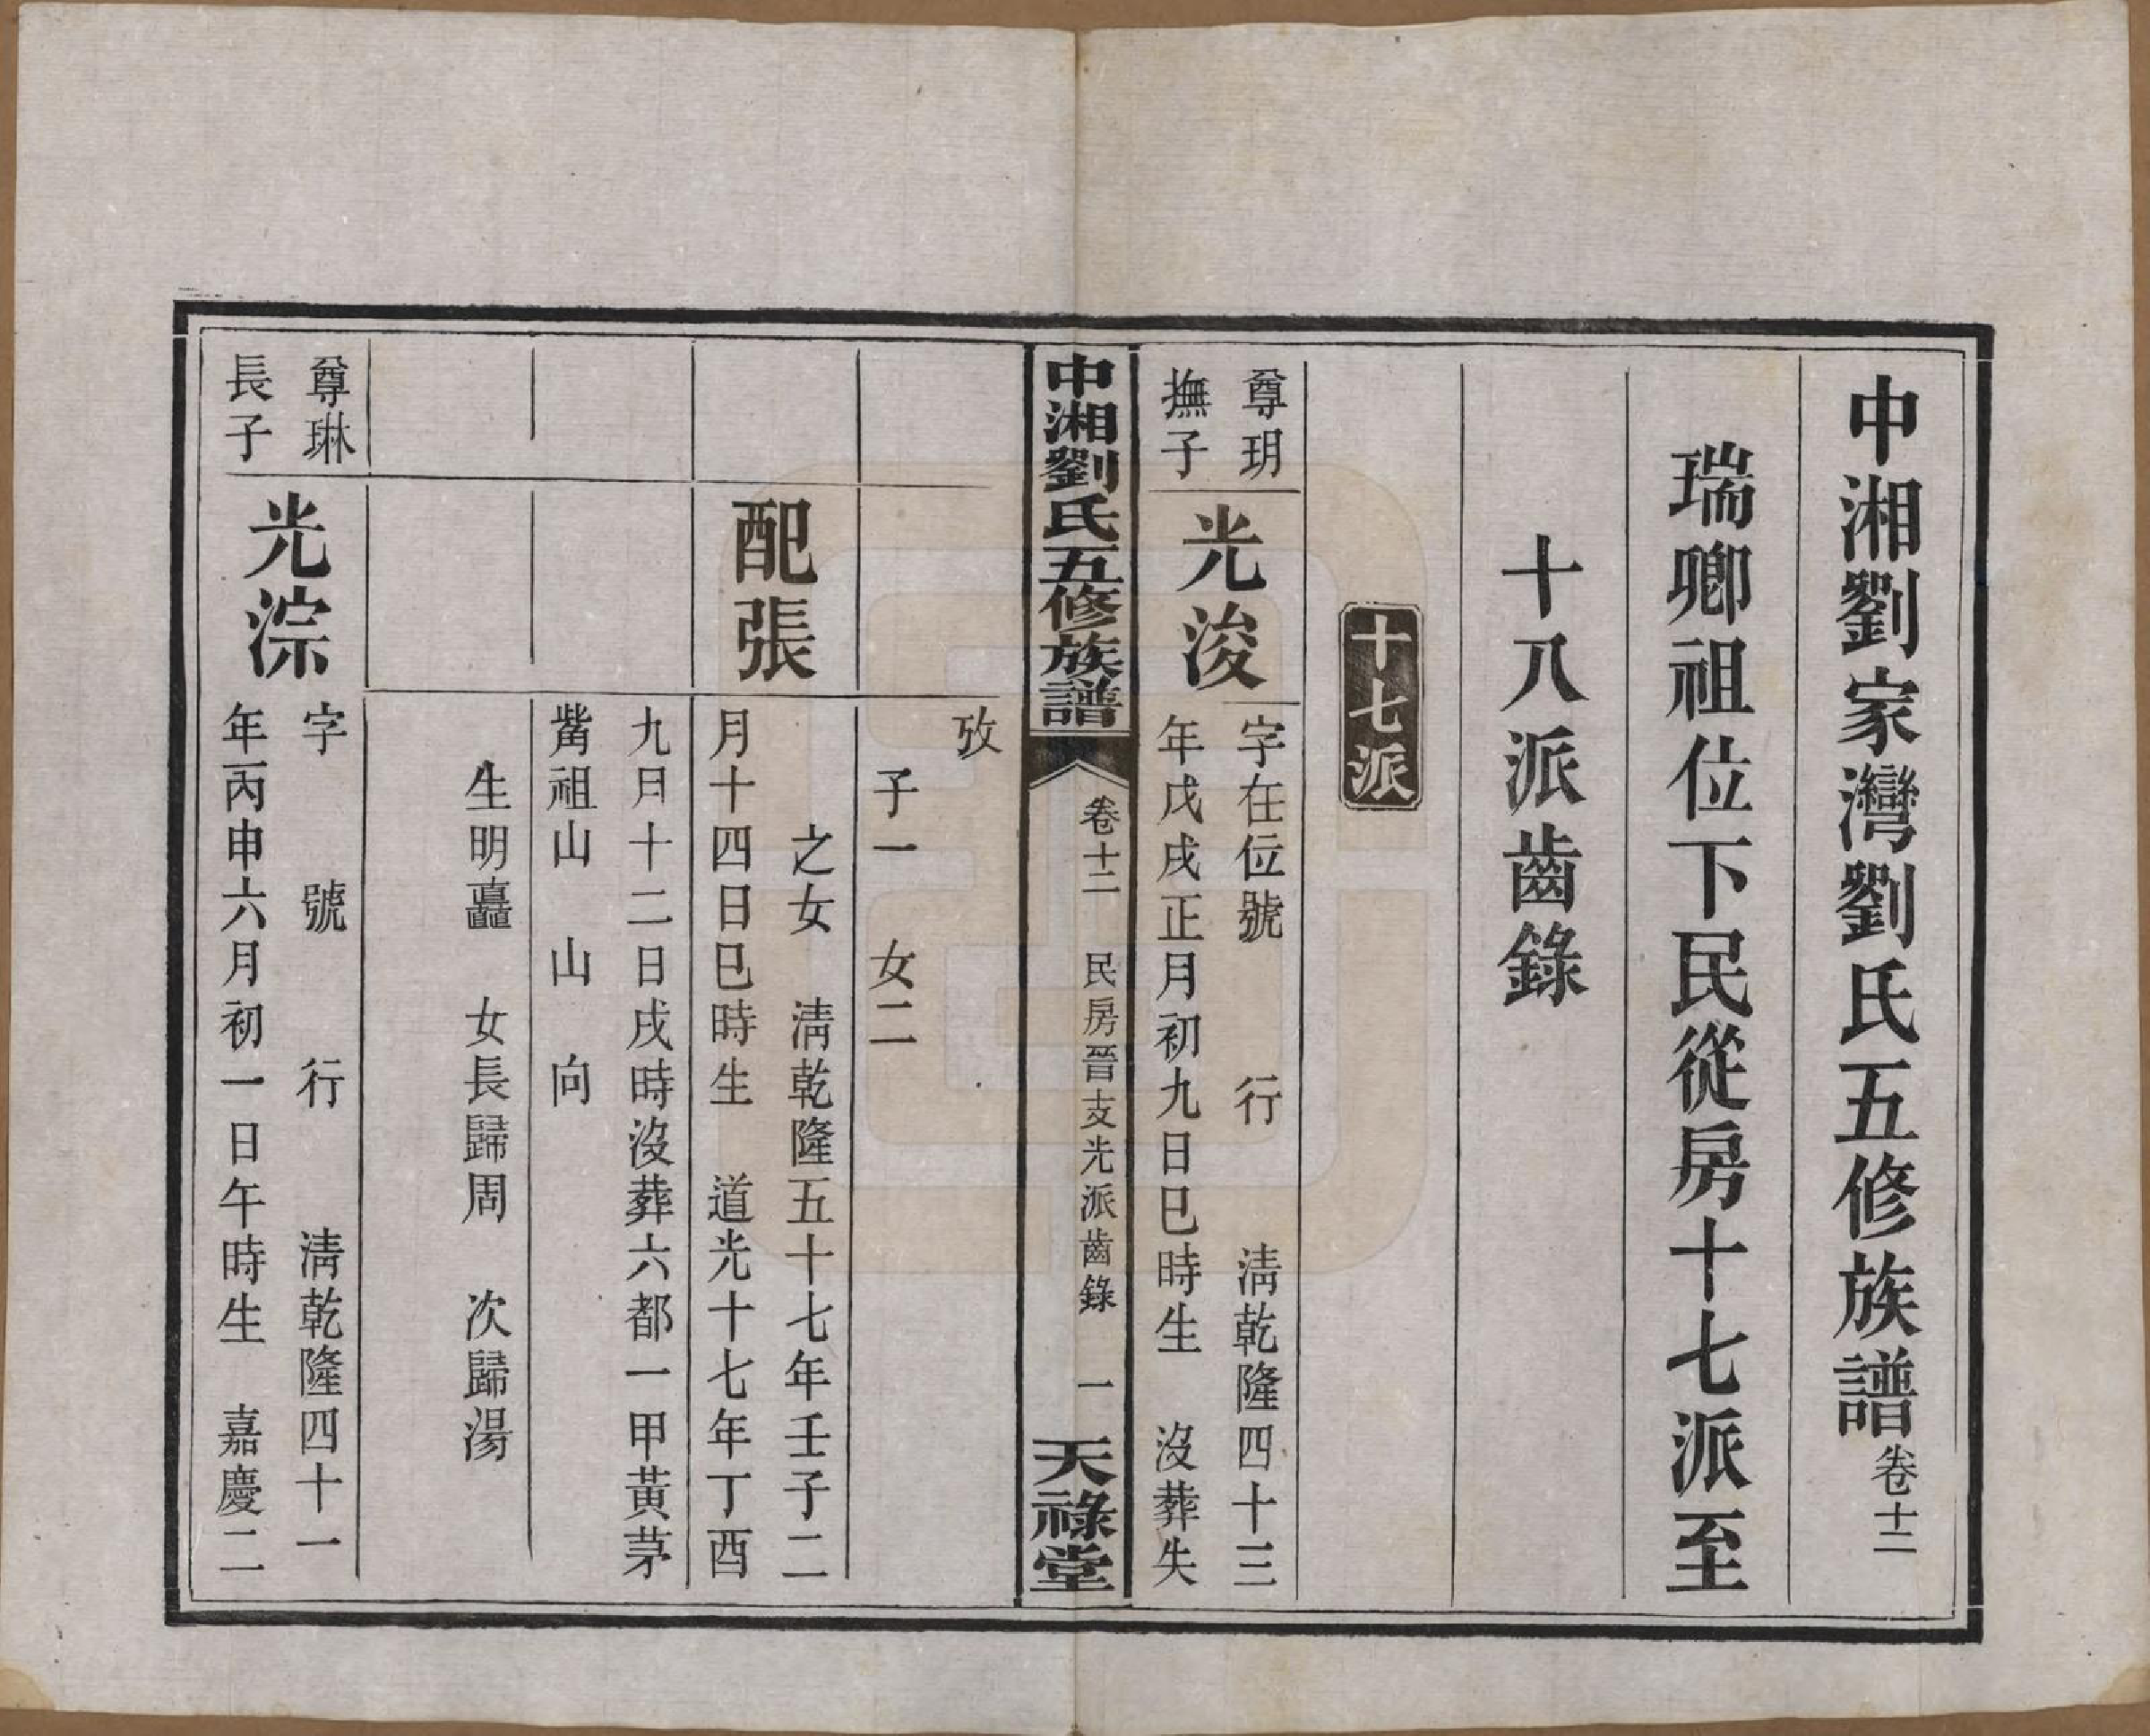 中湘劉家灣劉氏五修族譜卷十二
瑞卿祖位下民從房十七派至
十八派齒錄
十七派
尊玥
撫子
光浚
字在位號 行 淸乾隆四十三
年戊戌正月初九日巳時生 沒葬失
中湘劉氏五修族譜
卷十二 民房晉支光派齒錄 一
天祿堂
攷
子一 女二
配張
之女 淸乾隆五十七年壬子二
月十四日巳時生 道光十七年丁酉
九月十二日戌時沒葬六都一甲黃茅
觜祖山 山 向
生明矗 女長歸周 次歸湯
尊琳
長子
光淙
字 號 行 淸乾隆四十一
年丙申六月初一日午時生 嘉慶二